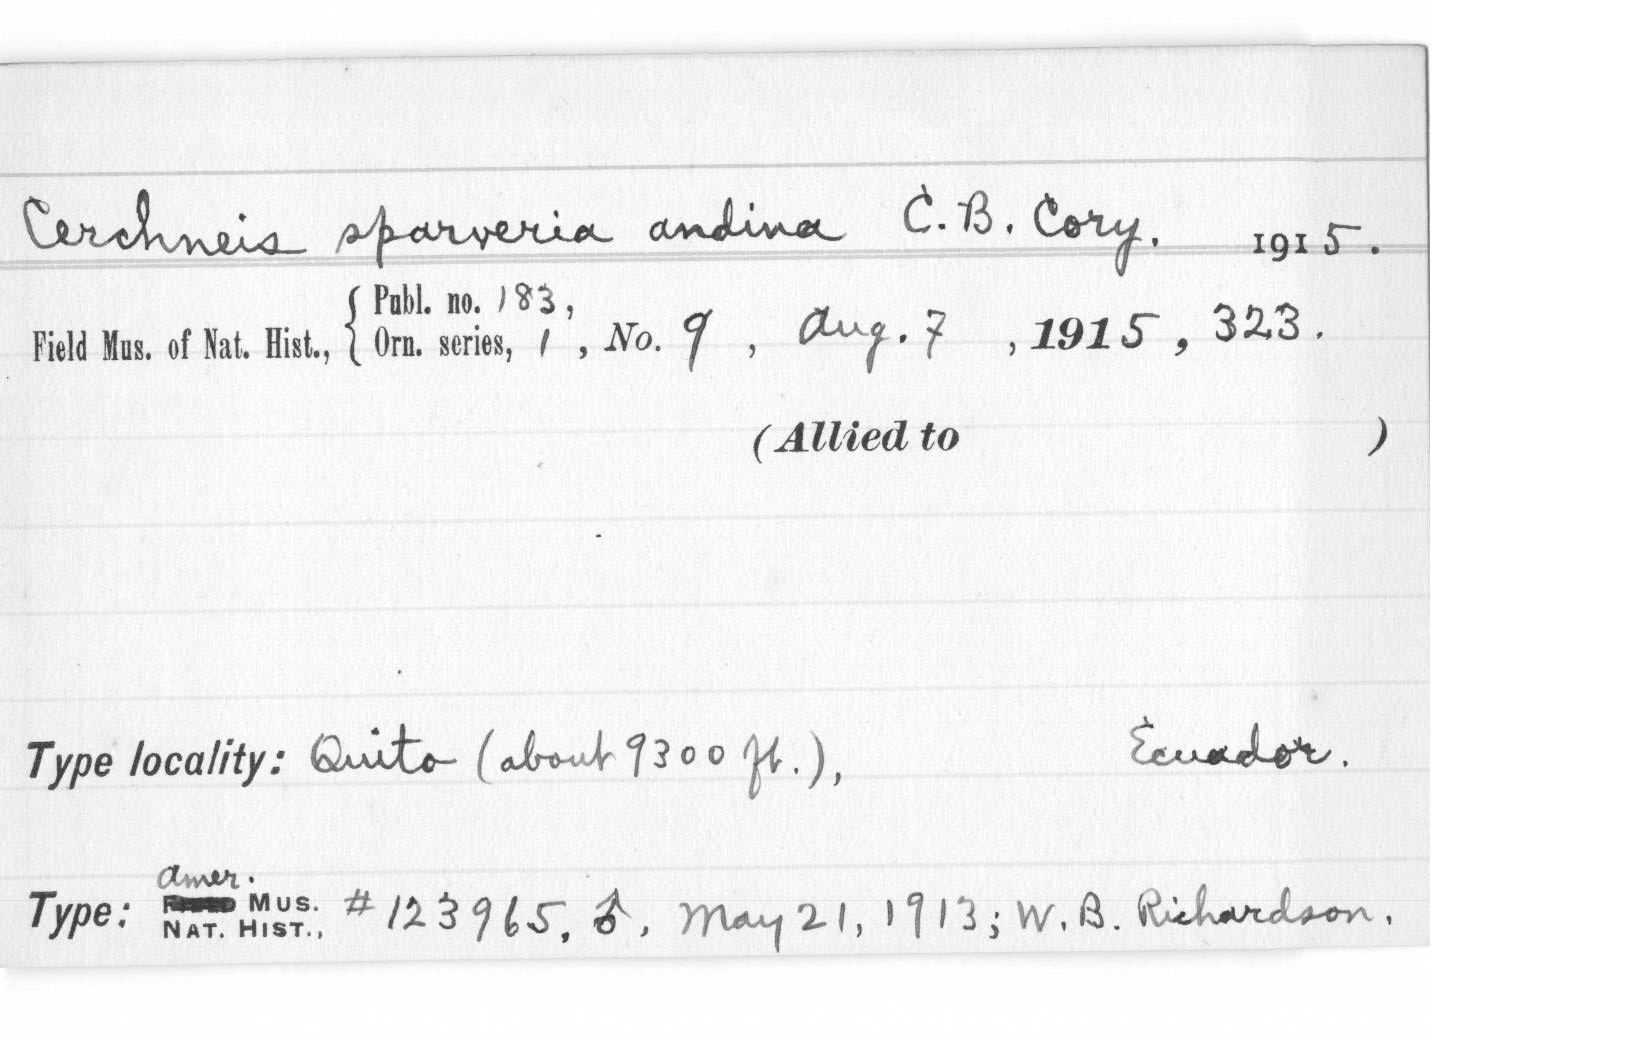 Cerchneis sparveria andina C. B. Cory. 1915.
Field Mus. of Nat. Hist., { Publ. no. 183,
Orn. series, 1, No. 9, Aug. 7, 1915, 323.
(Allied to )
Type locality: Quito (about 9300 ft.), Ecuador.
Amer.
Type: Field Mus. # 123965, ♂, May 21, 1913; W. B. Richardson.
Nat. Hist.,